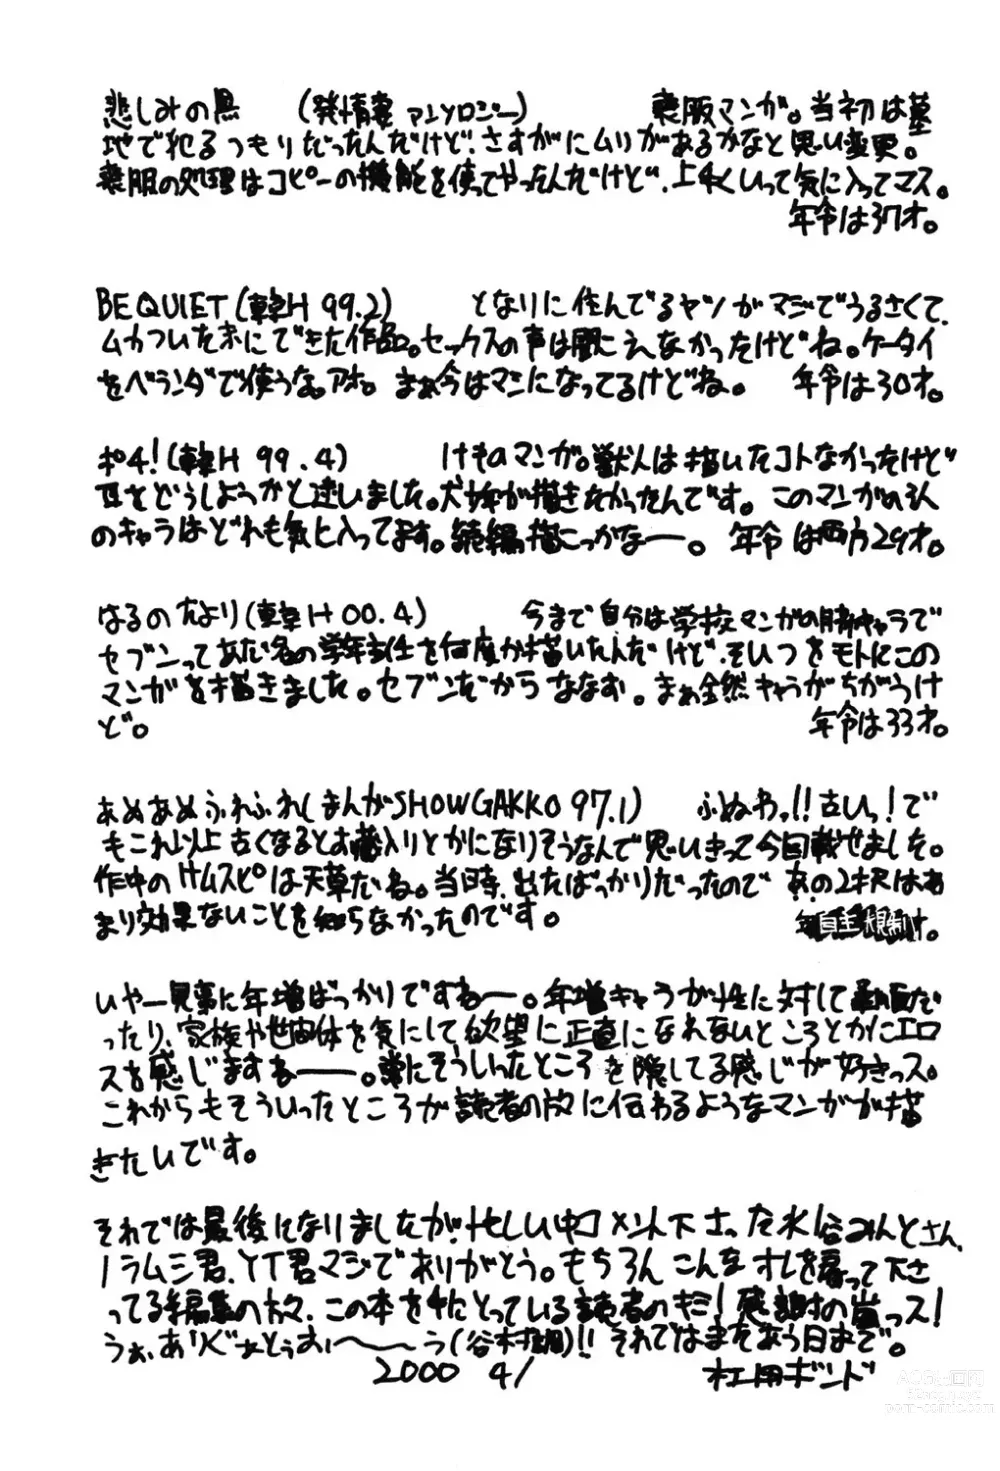 悲しみの黒 (発情妻アンソロジー) 喪服マンガ。当初は墓
地で犯るつもりだったんだけど、さすがにムリがあるかなと思い変更。
喪服の処理はコピーの機能を使ってやったんだけど、上手くいって気に入ってマス。
年令は37才。
BE QUIET (華H 99.2) となりに住んでるヤツがマジでうるさくて、
ムカついた末にできた作品。セックスの声は聞こえなかったけどね。ケータイ
をベランダで使うな。アホ。まぁ今はマシになってるけどね。 年令は30才。
ポチ! (華H 99.4) けものマンガ。獣人は描いたコトなかったけど
耳をどうしようかと迷いました。犬が描きたかったんです。このマンガの3人
のキャラはどれも気に入ってます。続編描こっかなー。 年令は両方29才。
はるのたより (華H 00.4) 今まで自分は学校マンガの脇キャラで
セブンってあだ名の学年主任を何度か描いたんだけど、そいつをモトにこの
マンガを描きました。セブンだからななお。まぁ全然キャラがちがうけ
ど。 年令は33才。
あめあめふれふれ (まんがSHOWGAKKO 97.1) ふぬわっ!!古いっ!で
もこれ以上古くなるとお蔵入りとかになりそうなんで思いきって今回載せました。
作中のサムスピは天草だね。当時、出たばっかりだったので あの2択はあ
まり効果ないことを知らなかったのです。 自主規制才。
いやー見事に年増ばっかりですねー。年増キャラが性に対して だ
ったり、家族や世間体を気にして欲望に正直になれないところとかにエロ
スを感じますねー。常にそういったところを隠してる感じが好きっス。
これからもそういったところが読者の方に伝わるようなマンガが描
きたいです。
それでは最後になりましたが、忙しい中コメント下さった水谷みんとさん、
ノラムシ君、YT君マジでありがとう。もちろんこんなオレを雇って下さ
ってる編集の方々、この本を手にとっている読者のキミ!感謝の嵐っス!
うぉ、ありがとうぉぉ〜う (谷村)!! それではまた会う日まで。
2000 4/ 杜用ボンド
ACG漫画网
52acg.xyz
porn-comic.com